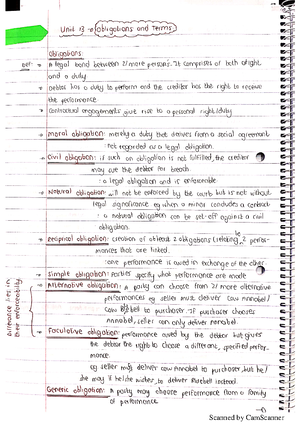 Unit 13 - Obligations and Terms
Obligations:
Def: → A legal bond between 2/more persons. It comprises of both a right
and a duty.
→ Debtor has a duty to perform and the creditor has the right to receive
the performance
→ Contractual engagements give rise to a personal right/duty
→ Moral obligation: merely a duty that derives from a social agreement
not regarded as a legal obligation.
→ Civil obligation: if such an obligation is not fulfilled, the creditor
may sue the debtor for breach.
: a legal obligation and is enforceable
→ Natural obligation: will not be enforced by the courts but is not without
legal significance eg when a minor concludes a contract
: a natural obligation can be set-off against a civil
obligation.
→ Reciprical obligation: creation of atleast 2 obligations linking 2 perfor-
mances that are linked.
: one performance is owed in exchange of the other
→ Simple obligation: Parties specify what performance are made
→ Alternative obligation: A party can choose from 2/more alternative
performances eg seller must deliver cow Annabel/
cow to purchaser. If purchaser chooses
Annabel, seller can only deliver Annabel.
→ Facultative obligation: performance owed by the debtor but gives
the debtor the right to choose a different, specified perfor-
mance.
eg seller must deliver cow Annabel to purchaser but he/
she may if he/she wishes, to deliver instead.
Generic obligation: A party may choose performance from a family
of performance.
difference lies in
their enforceability
Scanned by CamScanner